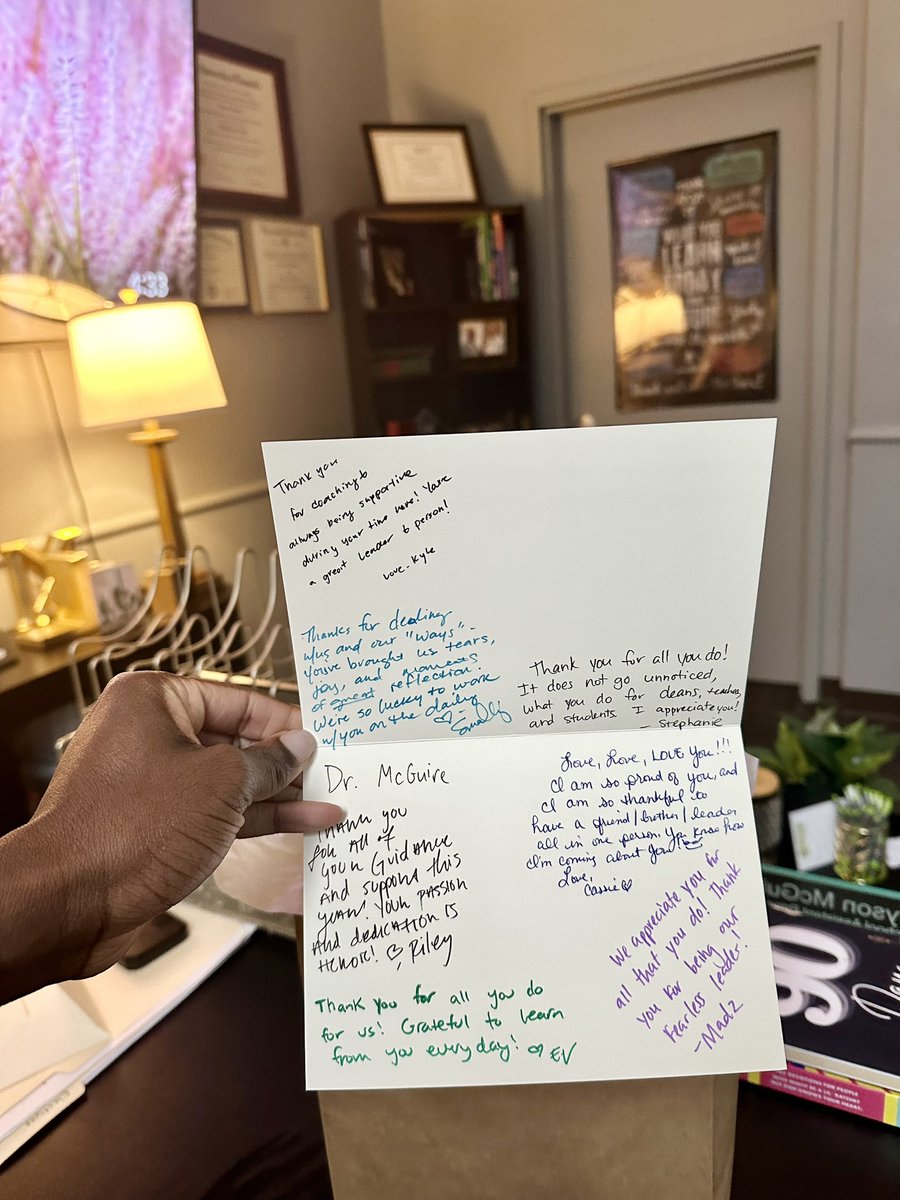 4:33
LEARN
TODAY
Thank you
for coaching &
always being supportive
during your time here! You're
a great leader & person!
Love - Kyle
Thanks for dealing
w/us and our "ways" -
You've brought us tears,
joy, and moments
of great reflection.
We're so lucky to work
w/you on the daily
Thank you for all you do!
It does not go unnoticed,
what you do for deans, teachers,
and students. I appreciate you!
- Stephanie
Dr. McGuire
Thank you
for All of
your Guidance
And support this
year! Your passion
And dedication is
Heroic! ♡, Riley
Love, Love, LOVE You!!!
I am so proud of you, and
I am so thankful to
have a friend/brother/leader
all in one person. You know how
I'm coming about you!
Love,
Cassie ♡
We appreciate you for
all that you do! Thank
you for being our
fearless leader!
- Madz
Thank you for all you do
for us! Grateful to learn
from you everyday! ♡ EV
yson McGu
90
DEVOTIONS FOR PEOPLE
WHO MIGHT BE A LIL' RATCHET
BUT GOD KNOWS YOUR HEART.